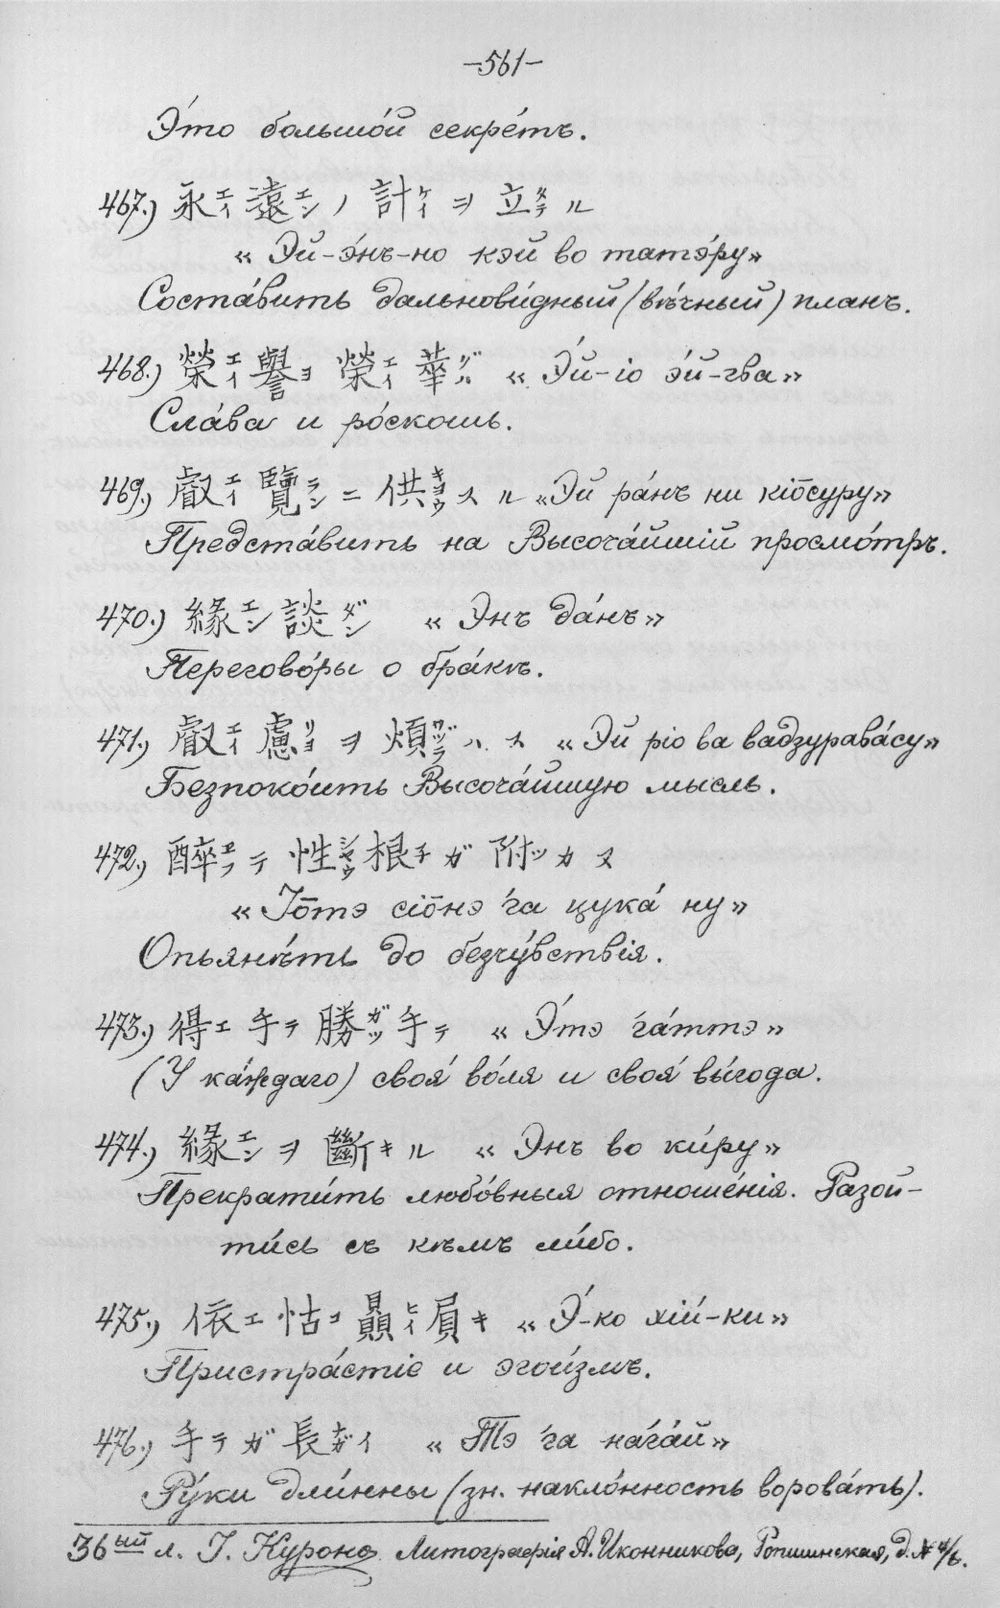 —561—
Э́то большо́й секре́тъ.
467.) 永エイ遠エンノ計ケイヲ立タテル
« Эй-э́нъ-но кэй во татэ́ру»
Соста́вить дальнови́дный (вѣ́чный) планъ.
468.) 榮エイ譽ヨ榮エイ華グハ « Э́й-іо э́й-гва»
Сла́ва и ро́скошь.
469.) 叡エイ覽ランニ供キヨウスル «Эй ра́нъ ни кіо̄суру»
Предста́вить на Высоча́йшій просмо́тръ.
470.) 緣エン談ダン « Энъ да́нъ»
Перегово́ры о бра́кѣ.
471.) 叡エイ慮リヨヲ煩ワヅラハス « Эй ріо ва вадзурава́су»
Безпоко́ить Высоча́йшую мысль.
472.) 醉エフテ性シャウ根子ガ附ツカヌ
« Іо̄тэ сіо̄нэ га цука́ ну»
Опьянѣ́ть до безчу́вствія.
473.) 得エ手テ勝ガツ手テ « Э́тэ га́ттэ»
(У ка́ждаго) своя́ во́ля и своя́ вы́года.
474.) 緣エンヲ斷キル « Энъ во ки́ру»
Прекрати́ть любо́вныя отноше́нія. Разой-
ти́сь съ кѣмъ ли́бо.
475.) 依エ怙コ贔ヒイ屓キ « Э́-ко хіи́-ки»
Пристра́стіе и эгои́змъ.
476.) 手テガ長ナガイ « Тэ га нага́й»
Ру́ки дли́нны (зн. накло́нность ворова́ть).
36ый л. І. Куроно. Литографія А. Иконникова, Ропшинская, д. №